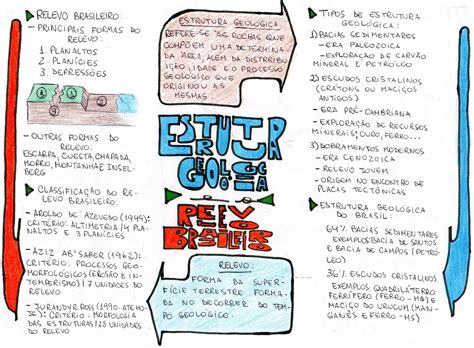 RELEVO BRASILEIRO:
- PRINCIPAIS FORMAS DO
RELEVO:
1. PLANALTOS
2. PLANÍCIES
3. DEPRESSÕES
- OUTRAS FORMAS DO
RELEVO:
ESCARPA, CUESTA, CHAPADA,
MORRO, MONTANHA E INSEL-
BERG
CLASSIFICAÇÃO DO RE
LEVO BRASILEIRO:
- AROLDO DE AZEVEDO (1949):
CRITÉRIO: ALTIMETRIA/4 PLA
NALTOS E 3 PLANÍCIES
- AZIZ AB' SABER (1962):
CRITÉRIO: PROCESSOS GEO-
MORFOLÓGICOS (EROSÃO E IN-
TEMPERISMO) 17 UNIDADES
DO RELEVO
- JURANDYR ROSS (1990-ATÉ HO-
JE): CRITÉRIO: MORFOLOGIA
DAS ESTRUTURAS/28 UNIDADES
DO RELEVO
ESTRUTURA GEOLÓGICA
REFERE-SE AS ROCHAS QUE
COMPÕEM UMA DETERMINA
DA ÁREA, ALÉM DA DISTRIBU-
IÇÃO, IDADE E O PROCESSO
GEOLÓGICO QUE
ORIGINOU AS
MESMAS
ESTRUTURA
GEOLÓGICA
RELEVO
BRASILEIRO
RELEVO:
FORMA DA SUPER-
FÍCIE TERRESTRE FORMA-
DA NO DECORRER DO TEM-
PO GEOLÓGICO.
TIPOS DE ESTRUTURA
GEOLÓGICA:
1) BACIAS SEDIMENTARES
- ERA PALEOZOICA
- EXPLORAÇÃO DE CARVÃO
MINERAL E PETRÓLEO
2) ESCUDOS CRISTALINOS
(CRATONS OU MACIÇOS
ANTIGOS)
- ERA PRÉ-CAMBRIANA
- EXPLORAÇÃO DE RECURSOS
MINERAIS: OURO, FERRO...
3) DOBRAMENTOS MODERNOS
- ERA CENOZOICA
- RELEVO JOVEM
- ORIGEM NO ENCONTRO DE
PLACAS TECTÔNICAS
ESTRUTURA GEOLÓGICA
DO BRASIL:
64% BACIAS SEDIMENTARES
EXEMPLOS: BACIA DE SANTOS
E BACIA DE CAMPOS (PETRÓ-
LEO)
36% ESCUDOS CRISTALINOS
EXEMPLOS: QUADRILÁTERO
FERRÍFERO (FERRO - MG) E
MACIÇO DO URUCUM (MAN-
GANÊS E FERRO - MS)